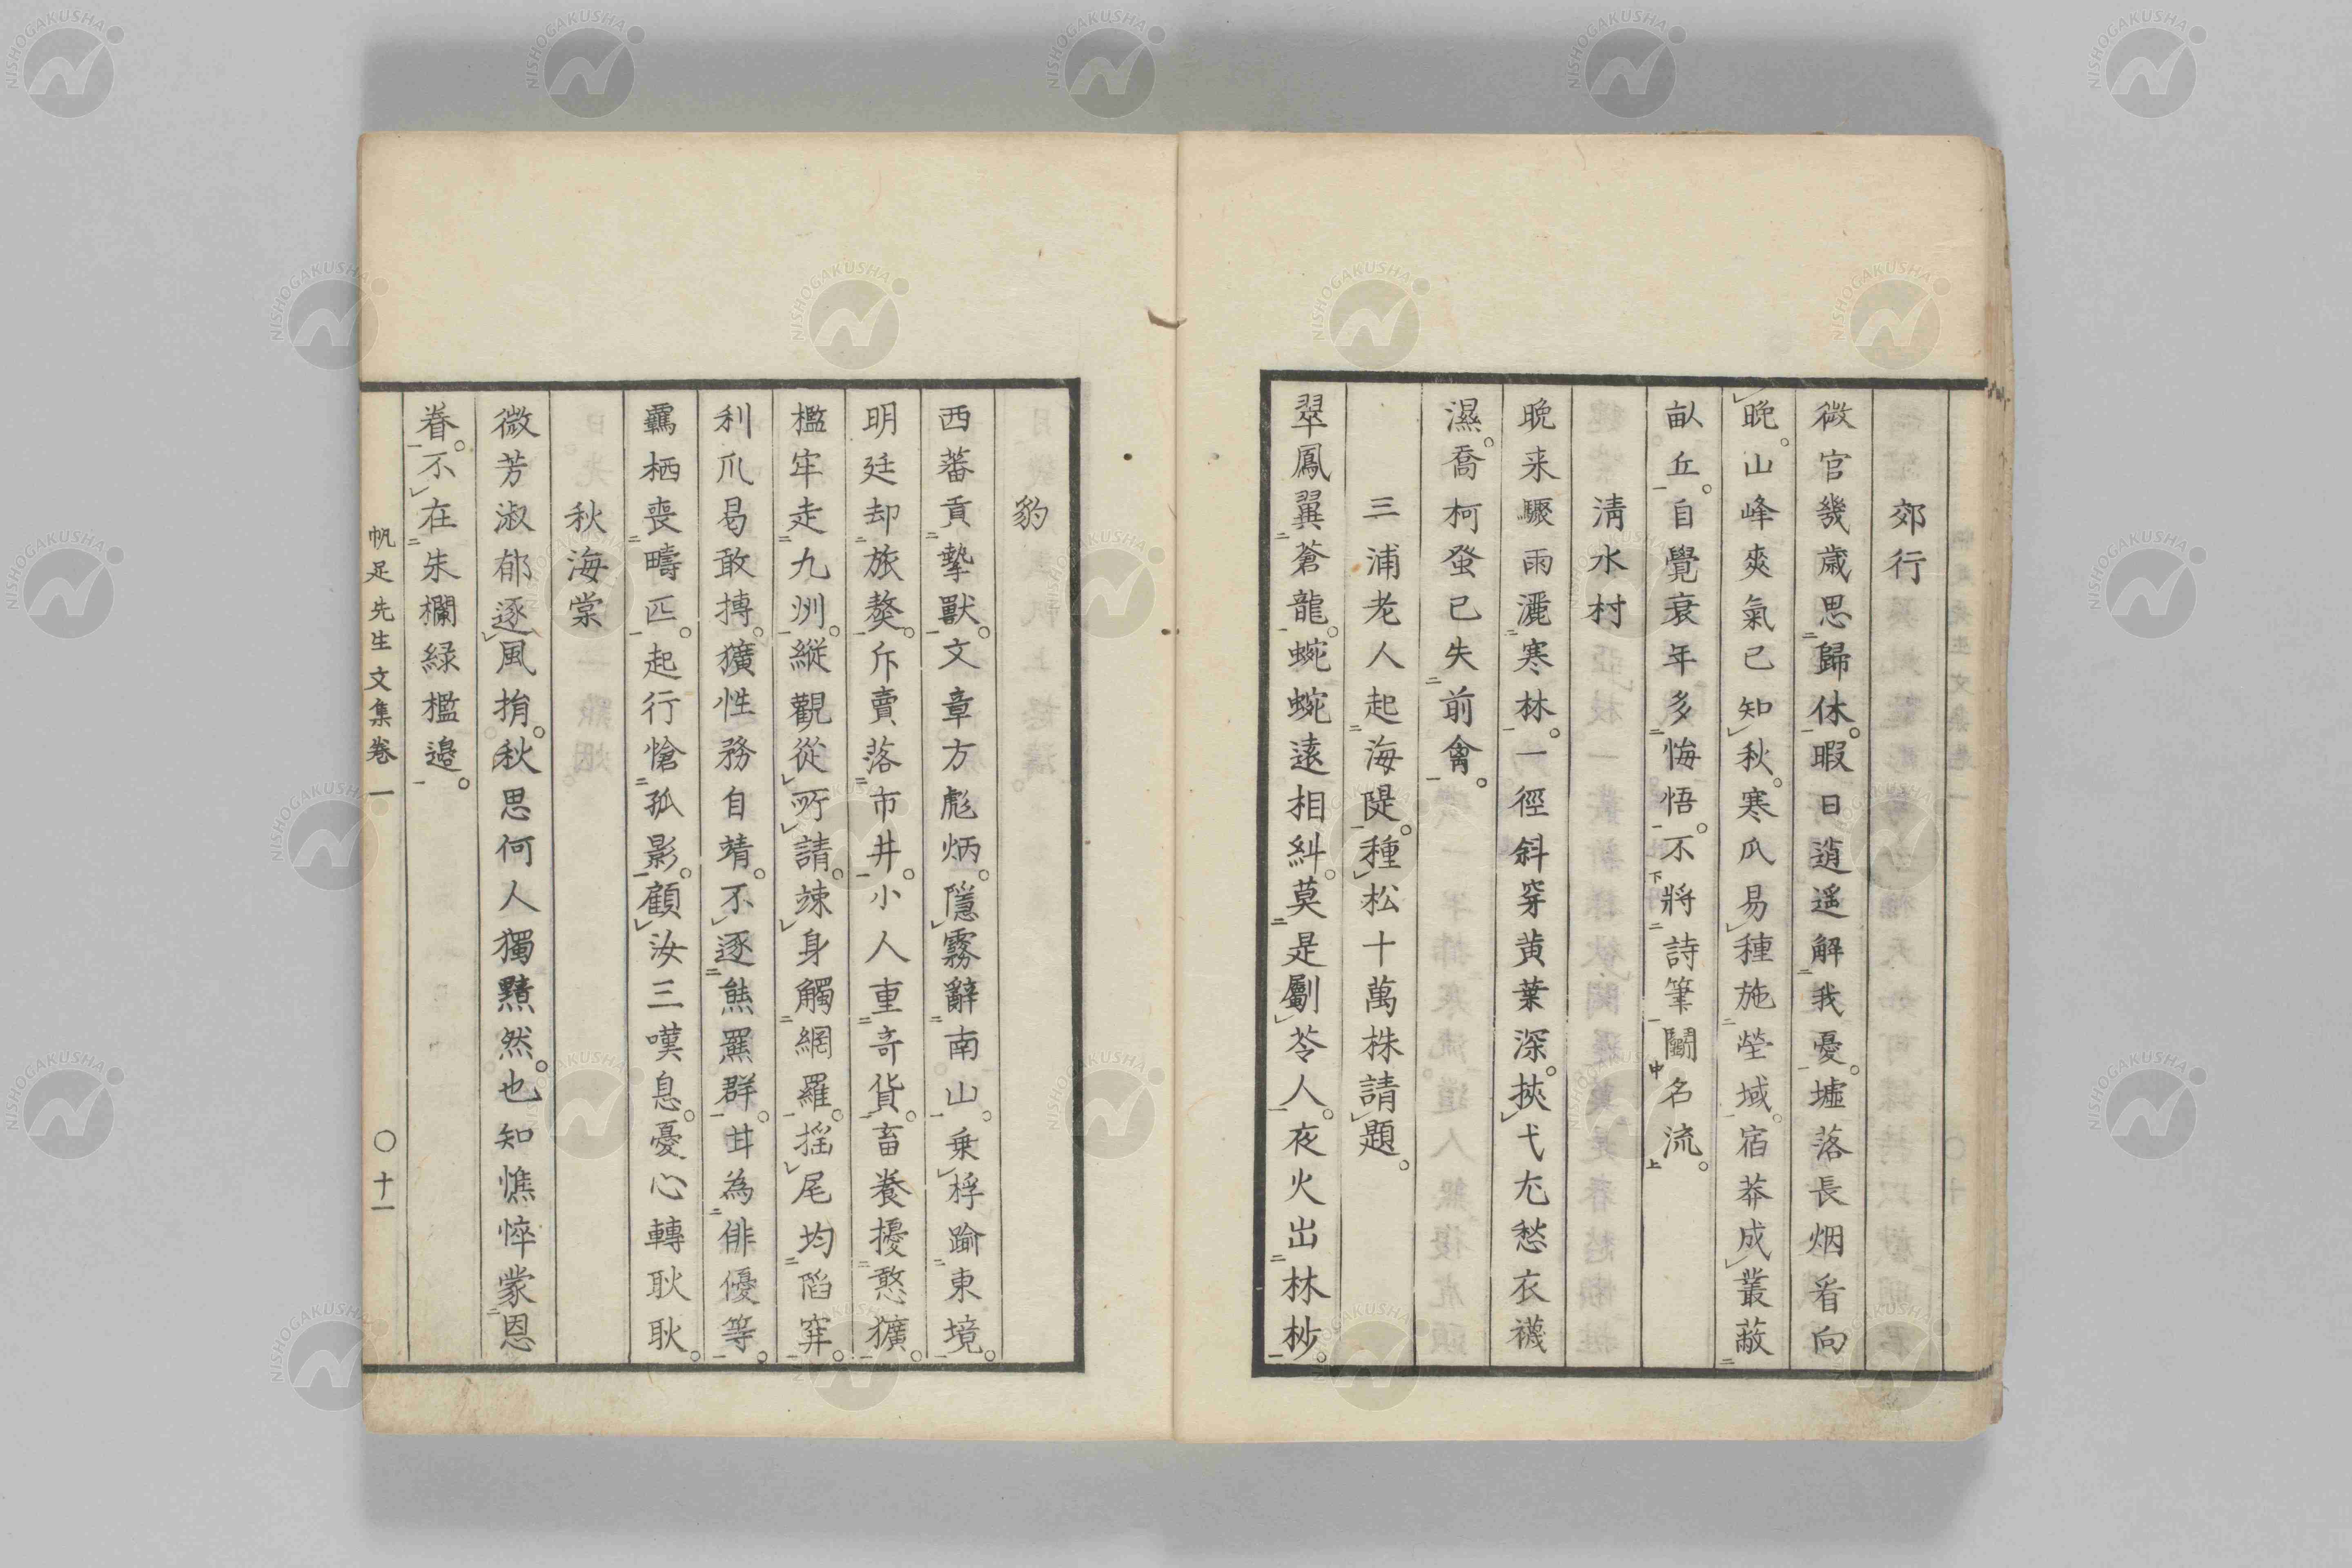 郊行
微官幾歲思歸休。暇日逍遥解我憂。墟落長烟看向
晚。山峰爽氣已知秋。寒瓜易種施塋域。宿莽成叢蔽
畝丘。自覺衰年多悔悟。不將詩筆鬭名流。
淸水村
晩来驟雨灑寒林。一徑斜穿黄葉深。挾弋尤愁衣襪
濕。喬柯發已失前禽。
三浦老人起海隄。種松十萬株請題。
翠鳳翼蒼龍。蜿蜿遠相糾。莫是劚苓人。夜火出林杪。
豹
西蕃貢摯獸。文章方彪炳。隱霧辭南山。乗桴踰東境。
明廷却旅獒。斥賣落市井。小人重奇貨。畜養擾憨獷。
檻牢走九州。縱觀從所請。竦身觸網羅。揺尾均陷穽。
利爪曷敢搏。獷性務自靖。不逐熊羆群。甘為俳優等。
羈栖喪疇匹。起行愴孤影。顧汝三嘆息。憂心轉耿耿。
秋海棠
微芳淑郁逐風捐。秋思何人獨黯然。也知憔悴蒙恩
眷。不在朱欄緑檻邉。
帆足先生文集卷一 〇十一
NISHOGAKUSHA